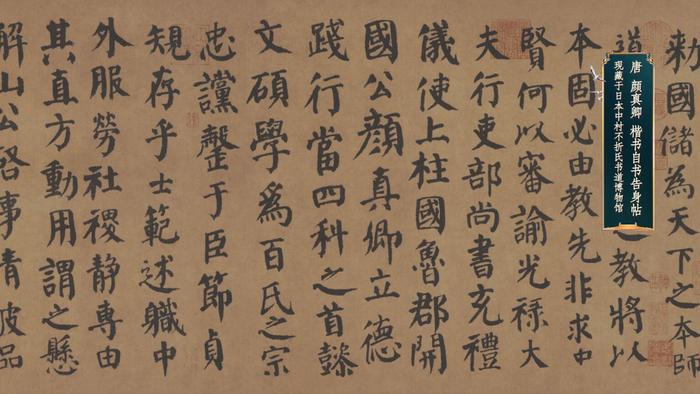 勑國儲為天下之本師
道教將以
本固必由教先非求中
賢何以審諭光祿大
夫行吏部尚書充禮
儀使上柱國魯郡開
國公顏真卿立德
踐行當四科之首懿
文碩學爲百氏之宗
忠讜罄于臣節貞
規存乎士範述職中
外服勞社稷静專由
其直方動用謂之懸
解山公啓事清彼品
唐 颜真卿 楷书自书告身帖
现藏于日本中村不折氏书道博物馆